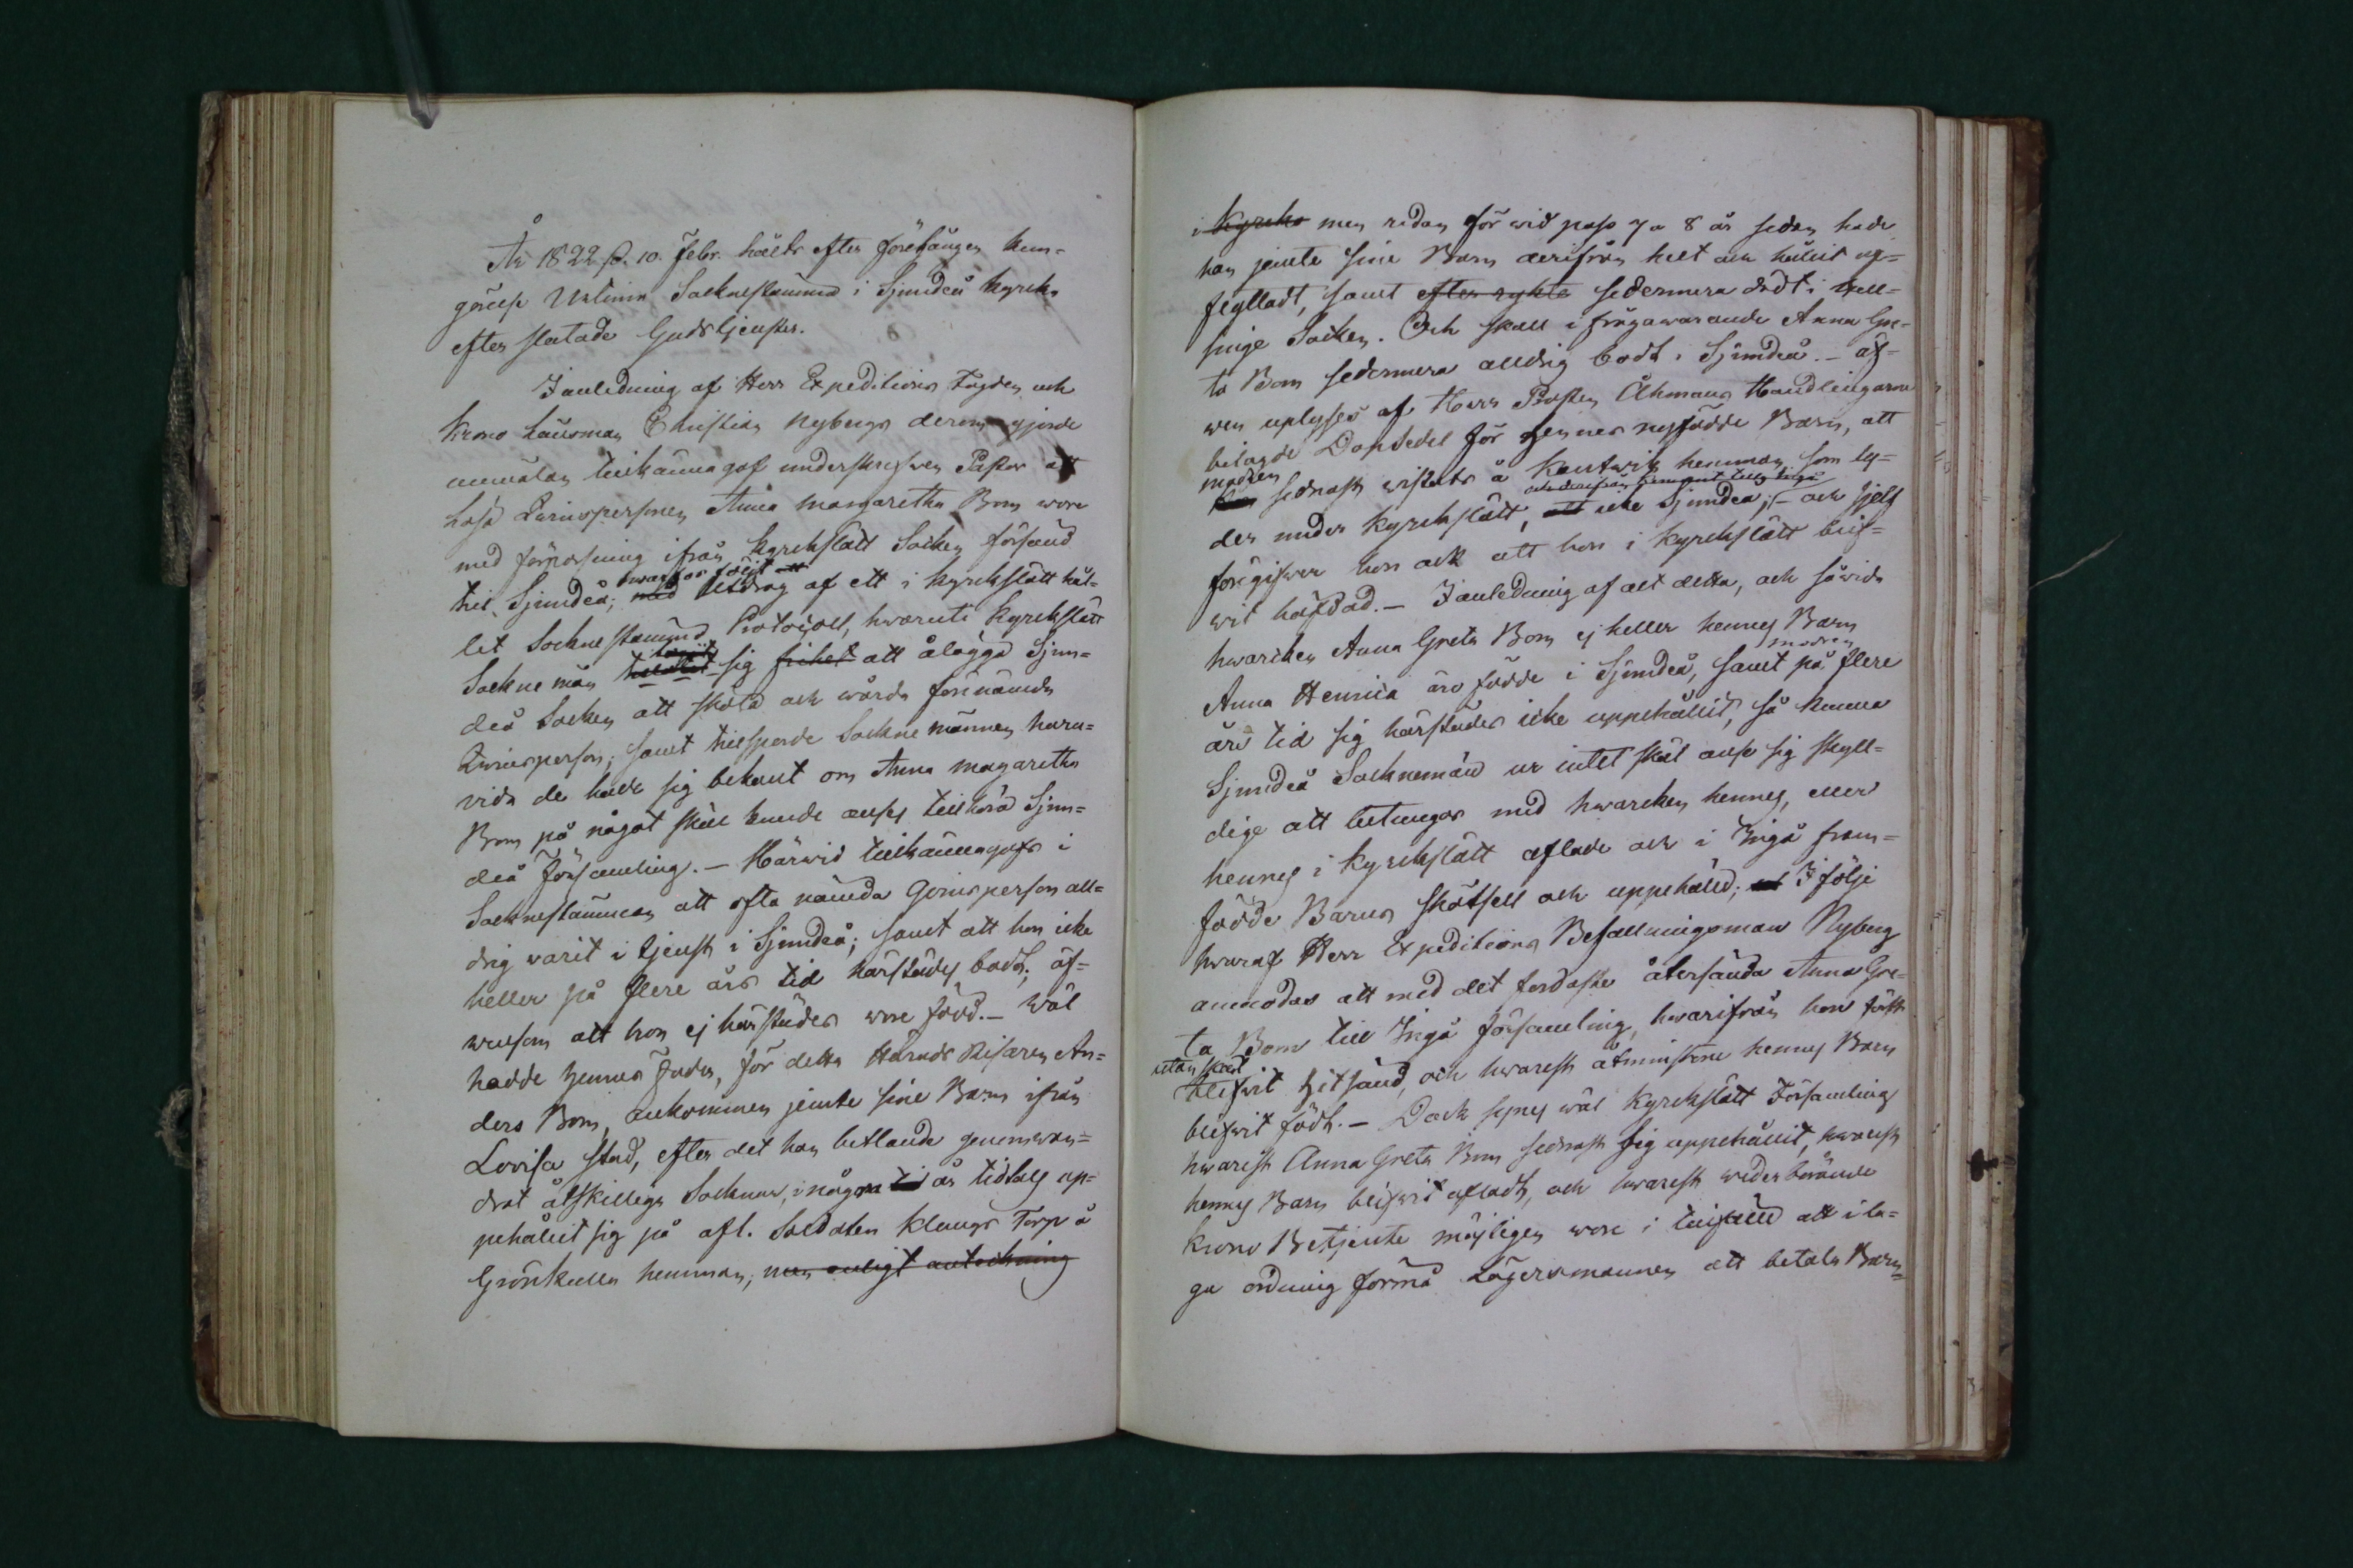 År 1822 d. 10. Febr. hölts efter föregången kun-
görelse Urtima Sockne stämma i Sjundeå kyrka
efter slutade Gudstjensten.
I anledning af Herr Expeditions Fogden och
Krono Länsman Christian Nybergs derom gjorde
anmälan tillkännagaf underskrifwen Pastor att
lösa Qwinspersonen Anna Margaretha Bom wore
med förpassning ifrån Kyrckslätt Socken försänd
till Sjundeå; med hwarhos följt att Utdrag af ett i Kyrckslätt hål-
let Sockne stämmo Protocoll, hwaruti Kyrckslätt
Sockne män tillåtit tagit sig frihet att ålägga Sjun-
deå Socken att sköta och wårda förenämnda
Qwinsperson; samt tillsporde Sockne männen huru-
vida de hade sig bekant om Anna Margaretha
Bom på något skäl kunde anses tillhöra Sjun-
deå Församling. – Härwid tillkännagafs i
Socknestämman att ofta nämnda Qvinsperson all-
drig varit i tjenst i Sjundeå; samt att hon icke
heller på flere års tid härstädes bodt; äf-
wensom att hon ej härstädes wore född. – Wäl
hadde hennes Fader, för detta Härads Risaren An-
ders Bom, ankommen jemte sine Barn ifrån
Lovisa stad, efter det han betlande genomwan-
drat åtskillega Socknar, i några ti år tidtals up-
pehållit sig på afl. Soldaten Klangs Torp å
Grönkulla hemman; men enligt antekning
i Kyrcko men redan för wid pass 7 a 8 år seden hade
han jemte sine Barn derifrån helt och hållit af-
flyttadt, samt efter rykte sedermera dödt i Hell-
singe Socken. Och skall ifrågawarande Anna Gre-
ta Bom sedermera alldrig bodt i Sjundeå. – Äf-
wen uplyses af Herr Prosten Åhmans Handlingarne
bilagde Dopsedel för hennes nyfödde Barn, att
hon modren sednast wistats å Kantwik hemman som ly-
der under Kyrckslätt, och derifrån kommit till Ingå att icke Sjundeå; – och sjelf
föregifwer hon ock att hon i Kyrckslätt blif-
wit häfdad. – I anledning af alt detta, och såwida
hwarcken Anna Greta Bom ej heller hennes Barn
Anna Henrica äro födde i Sjundeå, samt modren på flere
års tid sig härstädes icke uppehållit, så kunna
Sjundeå Socknemän ur intet skäl anse sig skyll-
dige att betungas med hwarcken hennes, eller
hennes i Kyrckslätt aflade och i Ingå fram-
födde Barns skötsell och uppehälld; ut I följe
hwaraf Herr Expeditions Befallningsman Nyberg
anmodas att med det fordaste återsända Anna Gre-
ta Bom till Ingå församling, hwarifrån hon först
utan skäl blifwit hitsänd, och hwarest åtminstone hennes Barn
blifwit födt. – Dock synes wäl Kyrckslätt Församling
hwarest Anna Greta Bom sednast sig uppehållit, hwarest
hennes Barn blifwit afladt, och hwarest wederbörande
Krono Betjente möjligen wore i tillfälle att i la-
ga ordning förmå Lägersmannen att betala Barn-